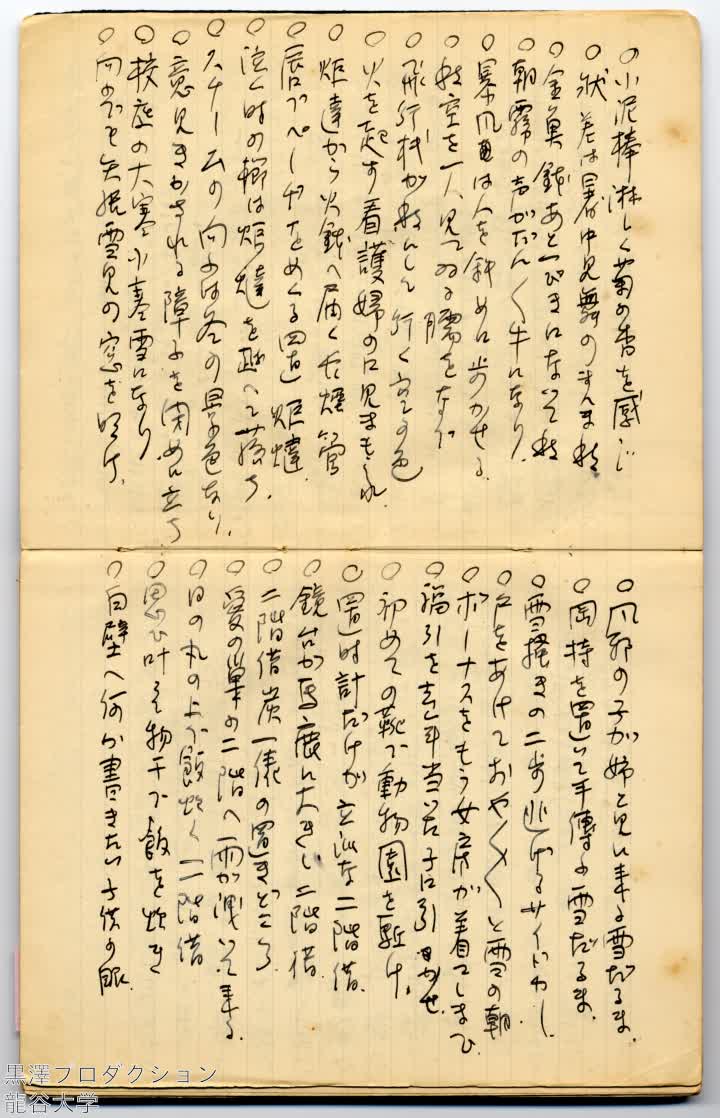 ○小泥棒淋しく菊の香を感じ
○状差は暑中見舞のまんま秋
○金魚鉢あと一ぴきになって秋
○朝霧の声がだん〱牛になり
○暴風雨は人を斜めに歩かせる
○秋空を一人見てゐる腰をなで
○飛行機が秋にして行く空の色
○火を起す看護婦の口見まもられ
○炬達から火鉢へ届く長煙管
○唇でページをめくる置炬燵
○泣く時の櫛は炬燵を越へて落ち
○スチームの向ふは冬の景色なり
○意見きかされる障子を閉めに立ち
○校庭の大寒小寒雪になり
○向ふでも矢張雪見の窓を明け
○風邪の子が姉と見に来る雪だるま
○岡持を置いて手傳ふ雪だるま
○雪掻きの二歩逃げるサイドカー
○戸をあけておや〱〱と雪の朝
○ボーナスをもう女房が着てしまひ
○福引を去年当いた子に引かせ
○初めての靴で動物園を駈け
○置時計だけが立派な二階借
○鏡台が馬鹿に大きい二階借
○二階借炭一俵の置きどころ
○愛の巣の二階へ雨が洩いて来る
○日の丸の上で飯炊く二階借
○思ひ叶って物干で飯を炊き
○白壁へ何か書きたい子供の眼
黒澤プロダクション
龍谷大学